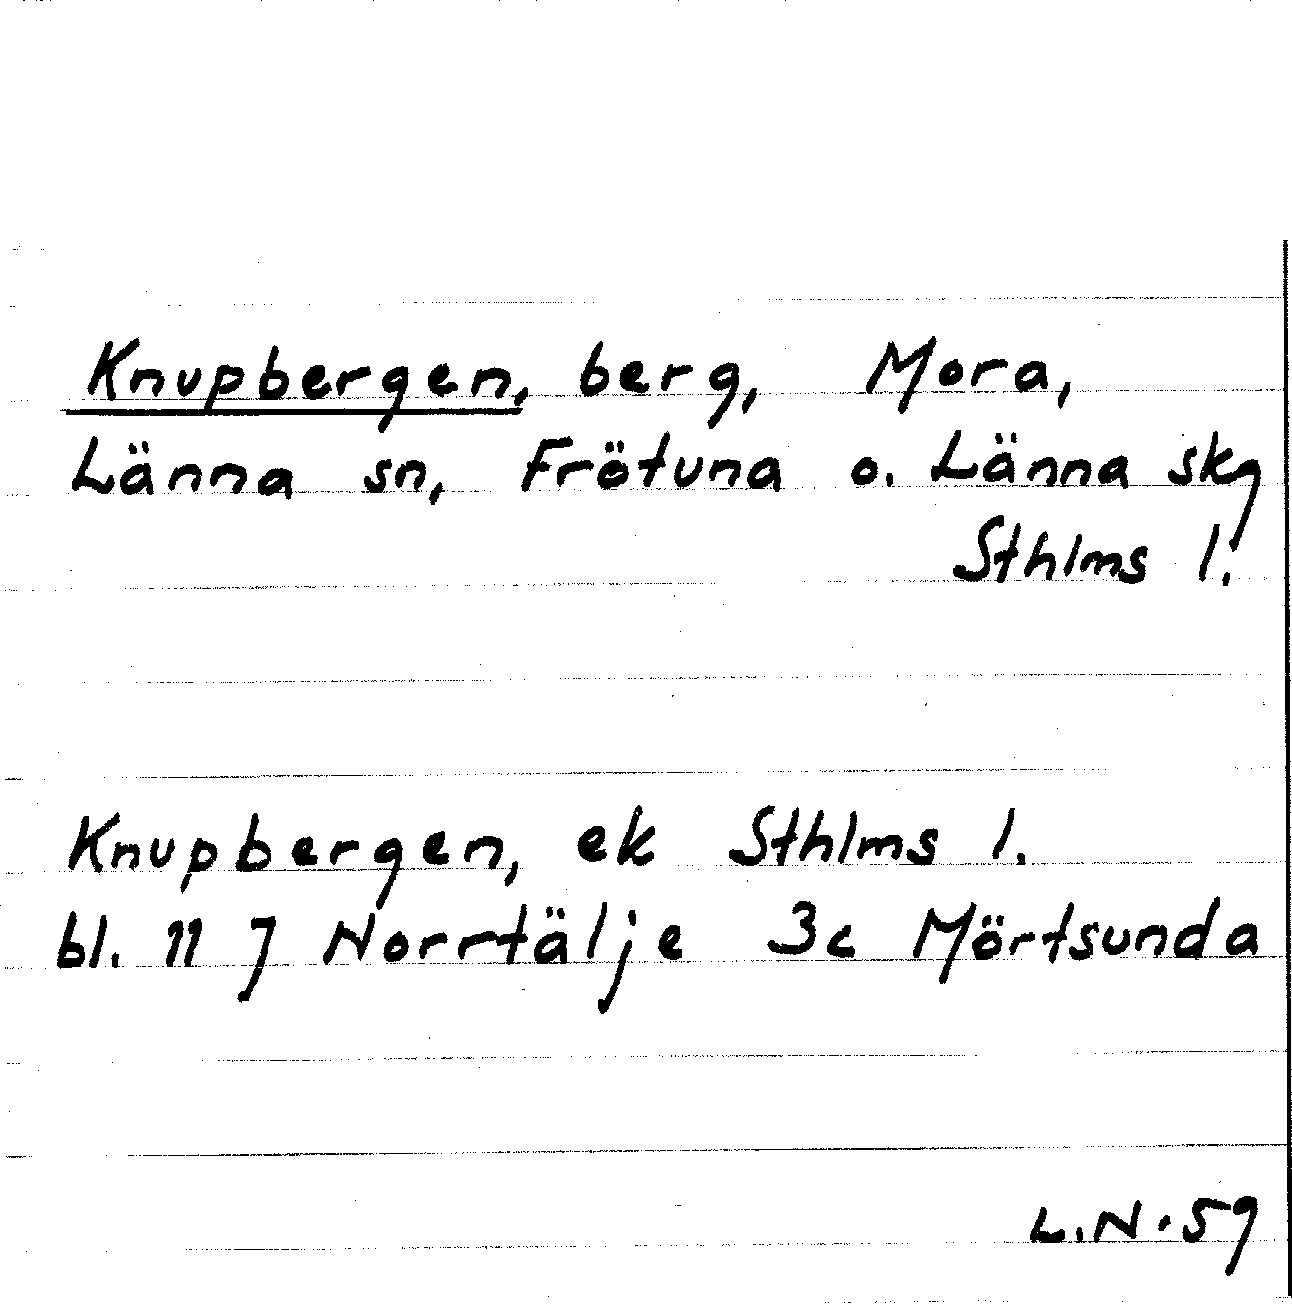 Knupbergen, berg, Mora,
Länna sn, Frötuna o. Länna skg
Sthlms l.
Knupbergen, ek Sthlms l.
bl. 11 J Norrtälje 3c Mörtsunda
L.N. 59